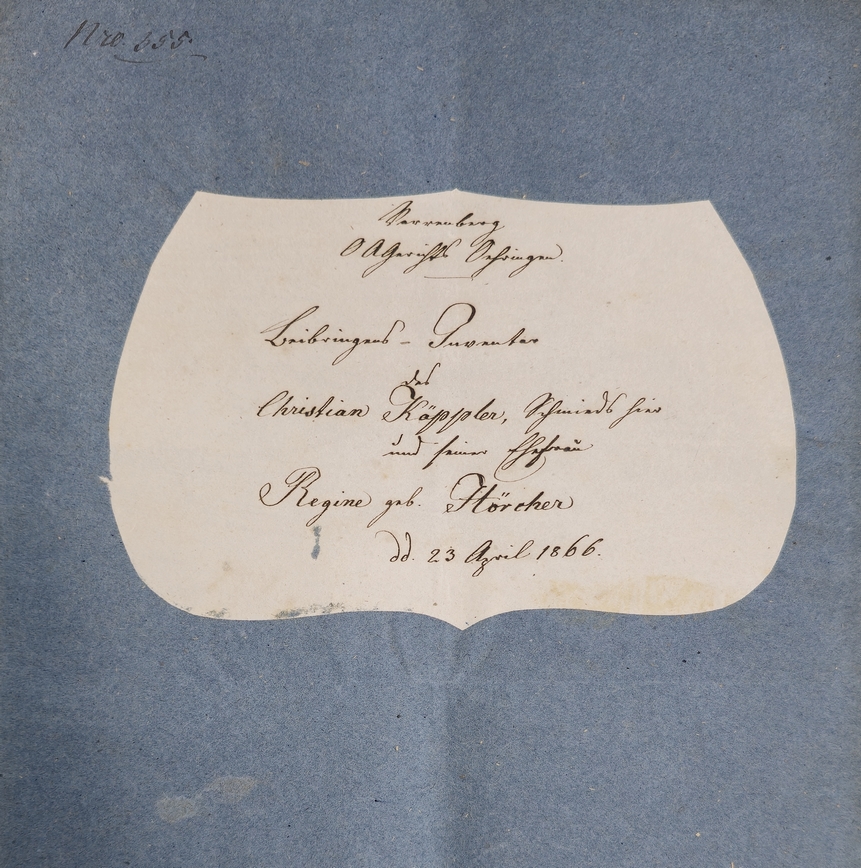 Nro. 555.
Verrenberg
OAGerichts Oehringen.
Beibringens - Inventar
des
Christian Käppler, Schmieds hier
und seiner Ehefrau
Regine geb. Hörcher
dd. 23 April 1866.